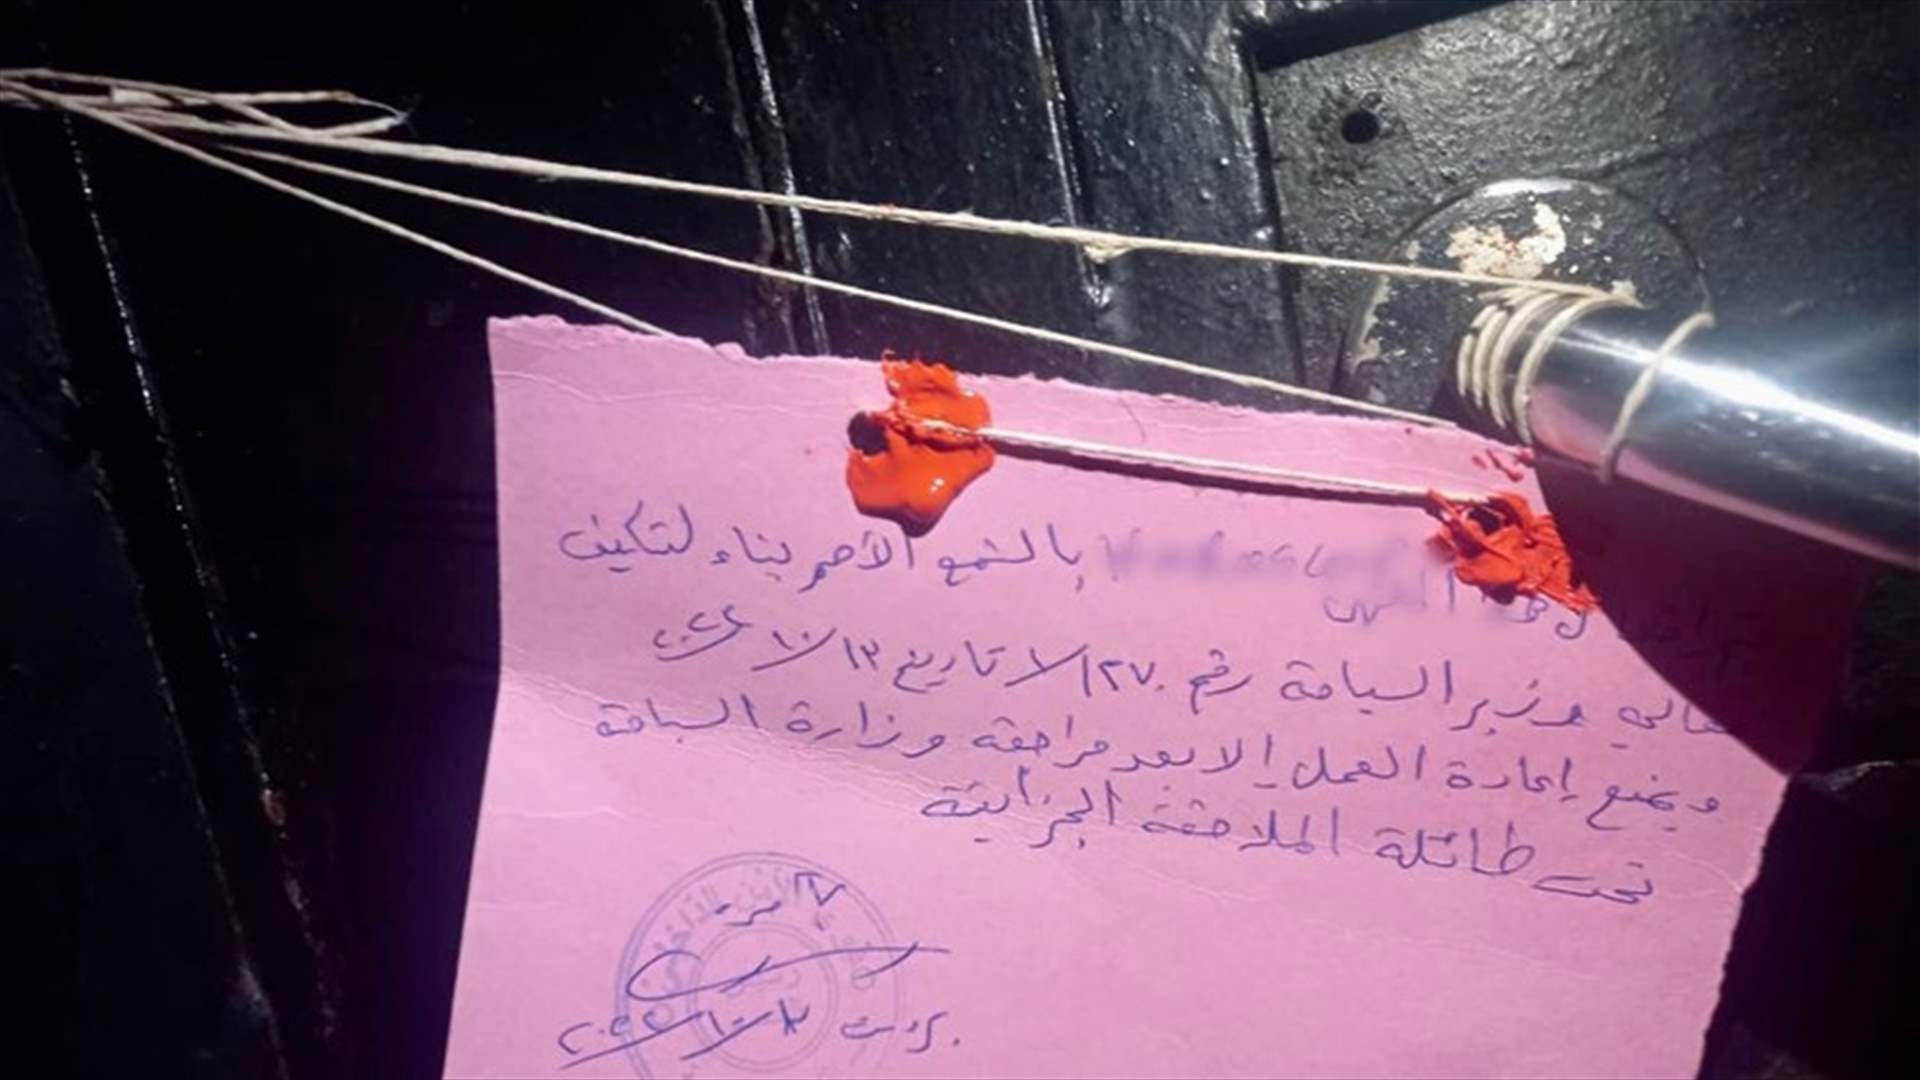 بالشمع الأحمر بناء لتكليف
معالي وزير السياحة رقم ١٢٧٠/ تاريخ ١٣/١٠/٢٠٢٢
ويمنع إعادة العمل إلا بعد مراجعة وزارة السياحة
تحت طائلة الملاحقة الجزائية
بيروت ١٣/١٠/٢٠٢٢